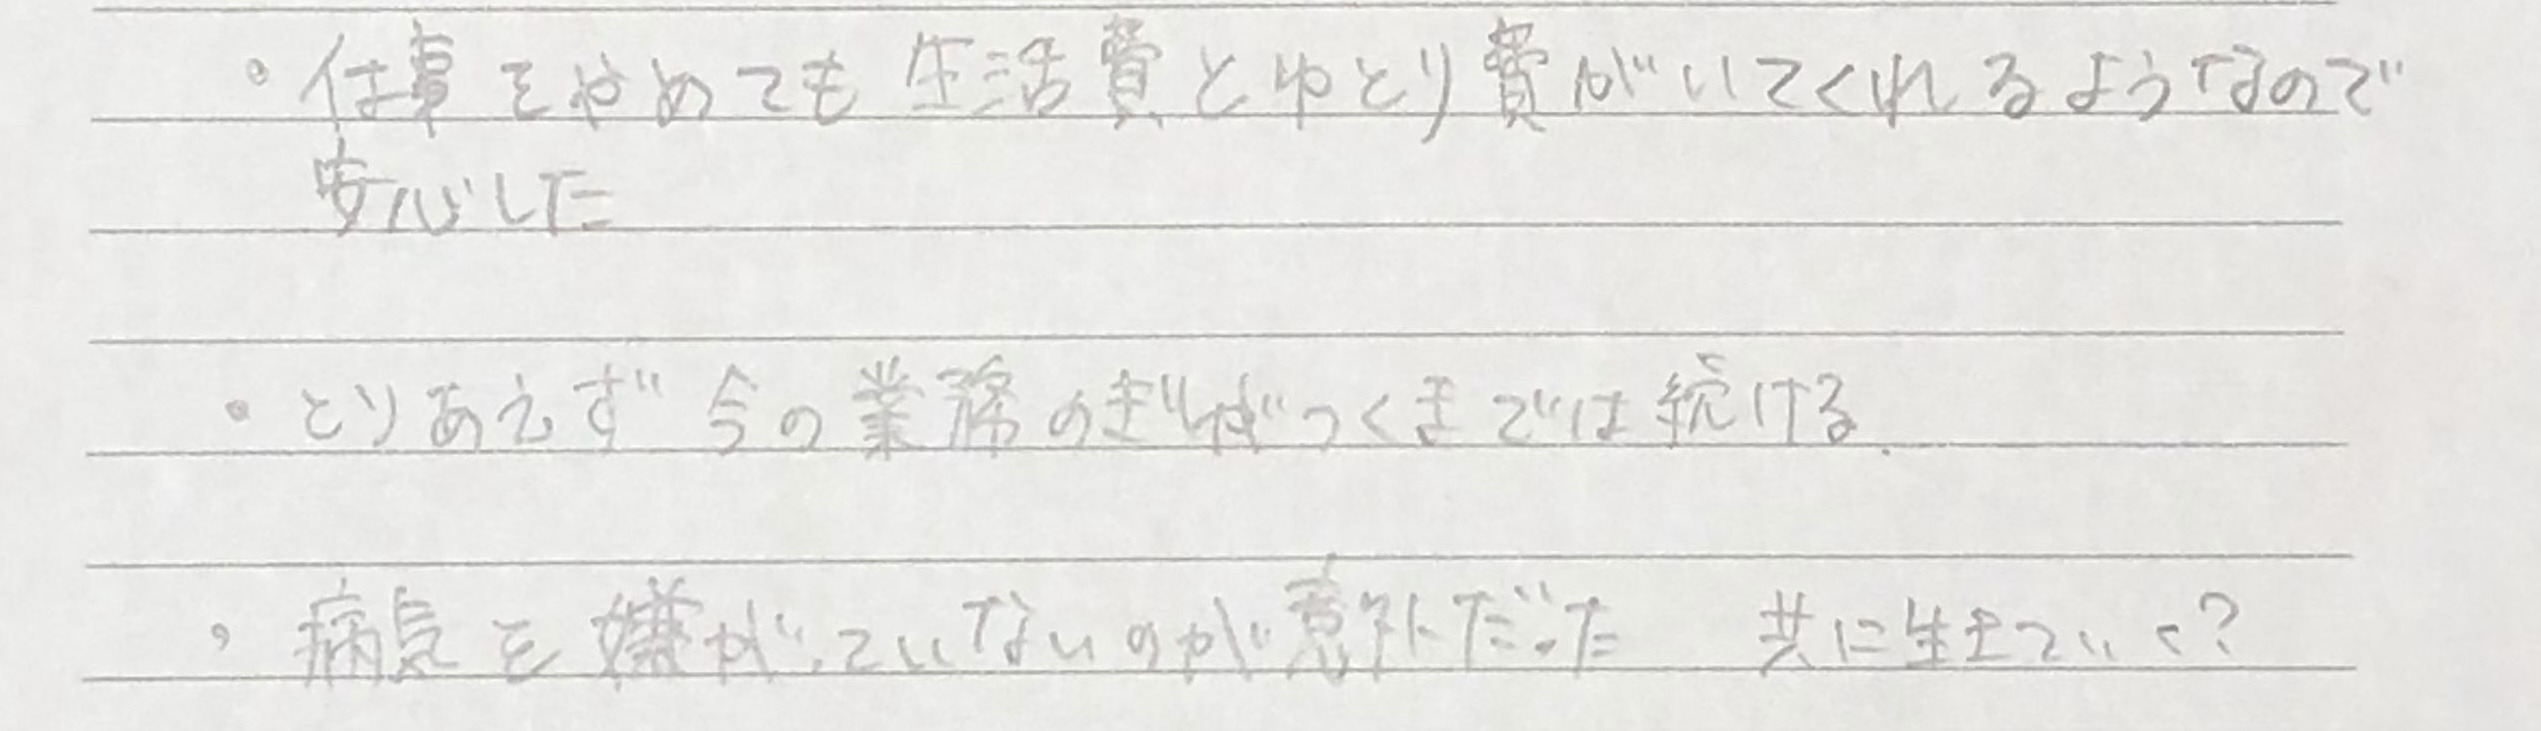 ・仕事をやめても生活費とゆとり費がいてくれるようなので
安心した
・とりあえず今の業務のきばがつくまでは続ける.
・病気を嫌がっていないのが意外だった 共に生きていく?